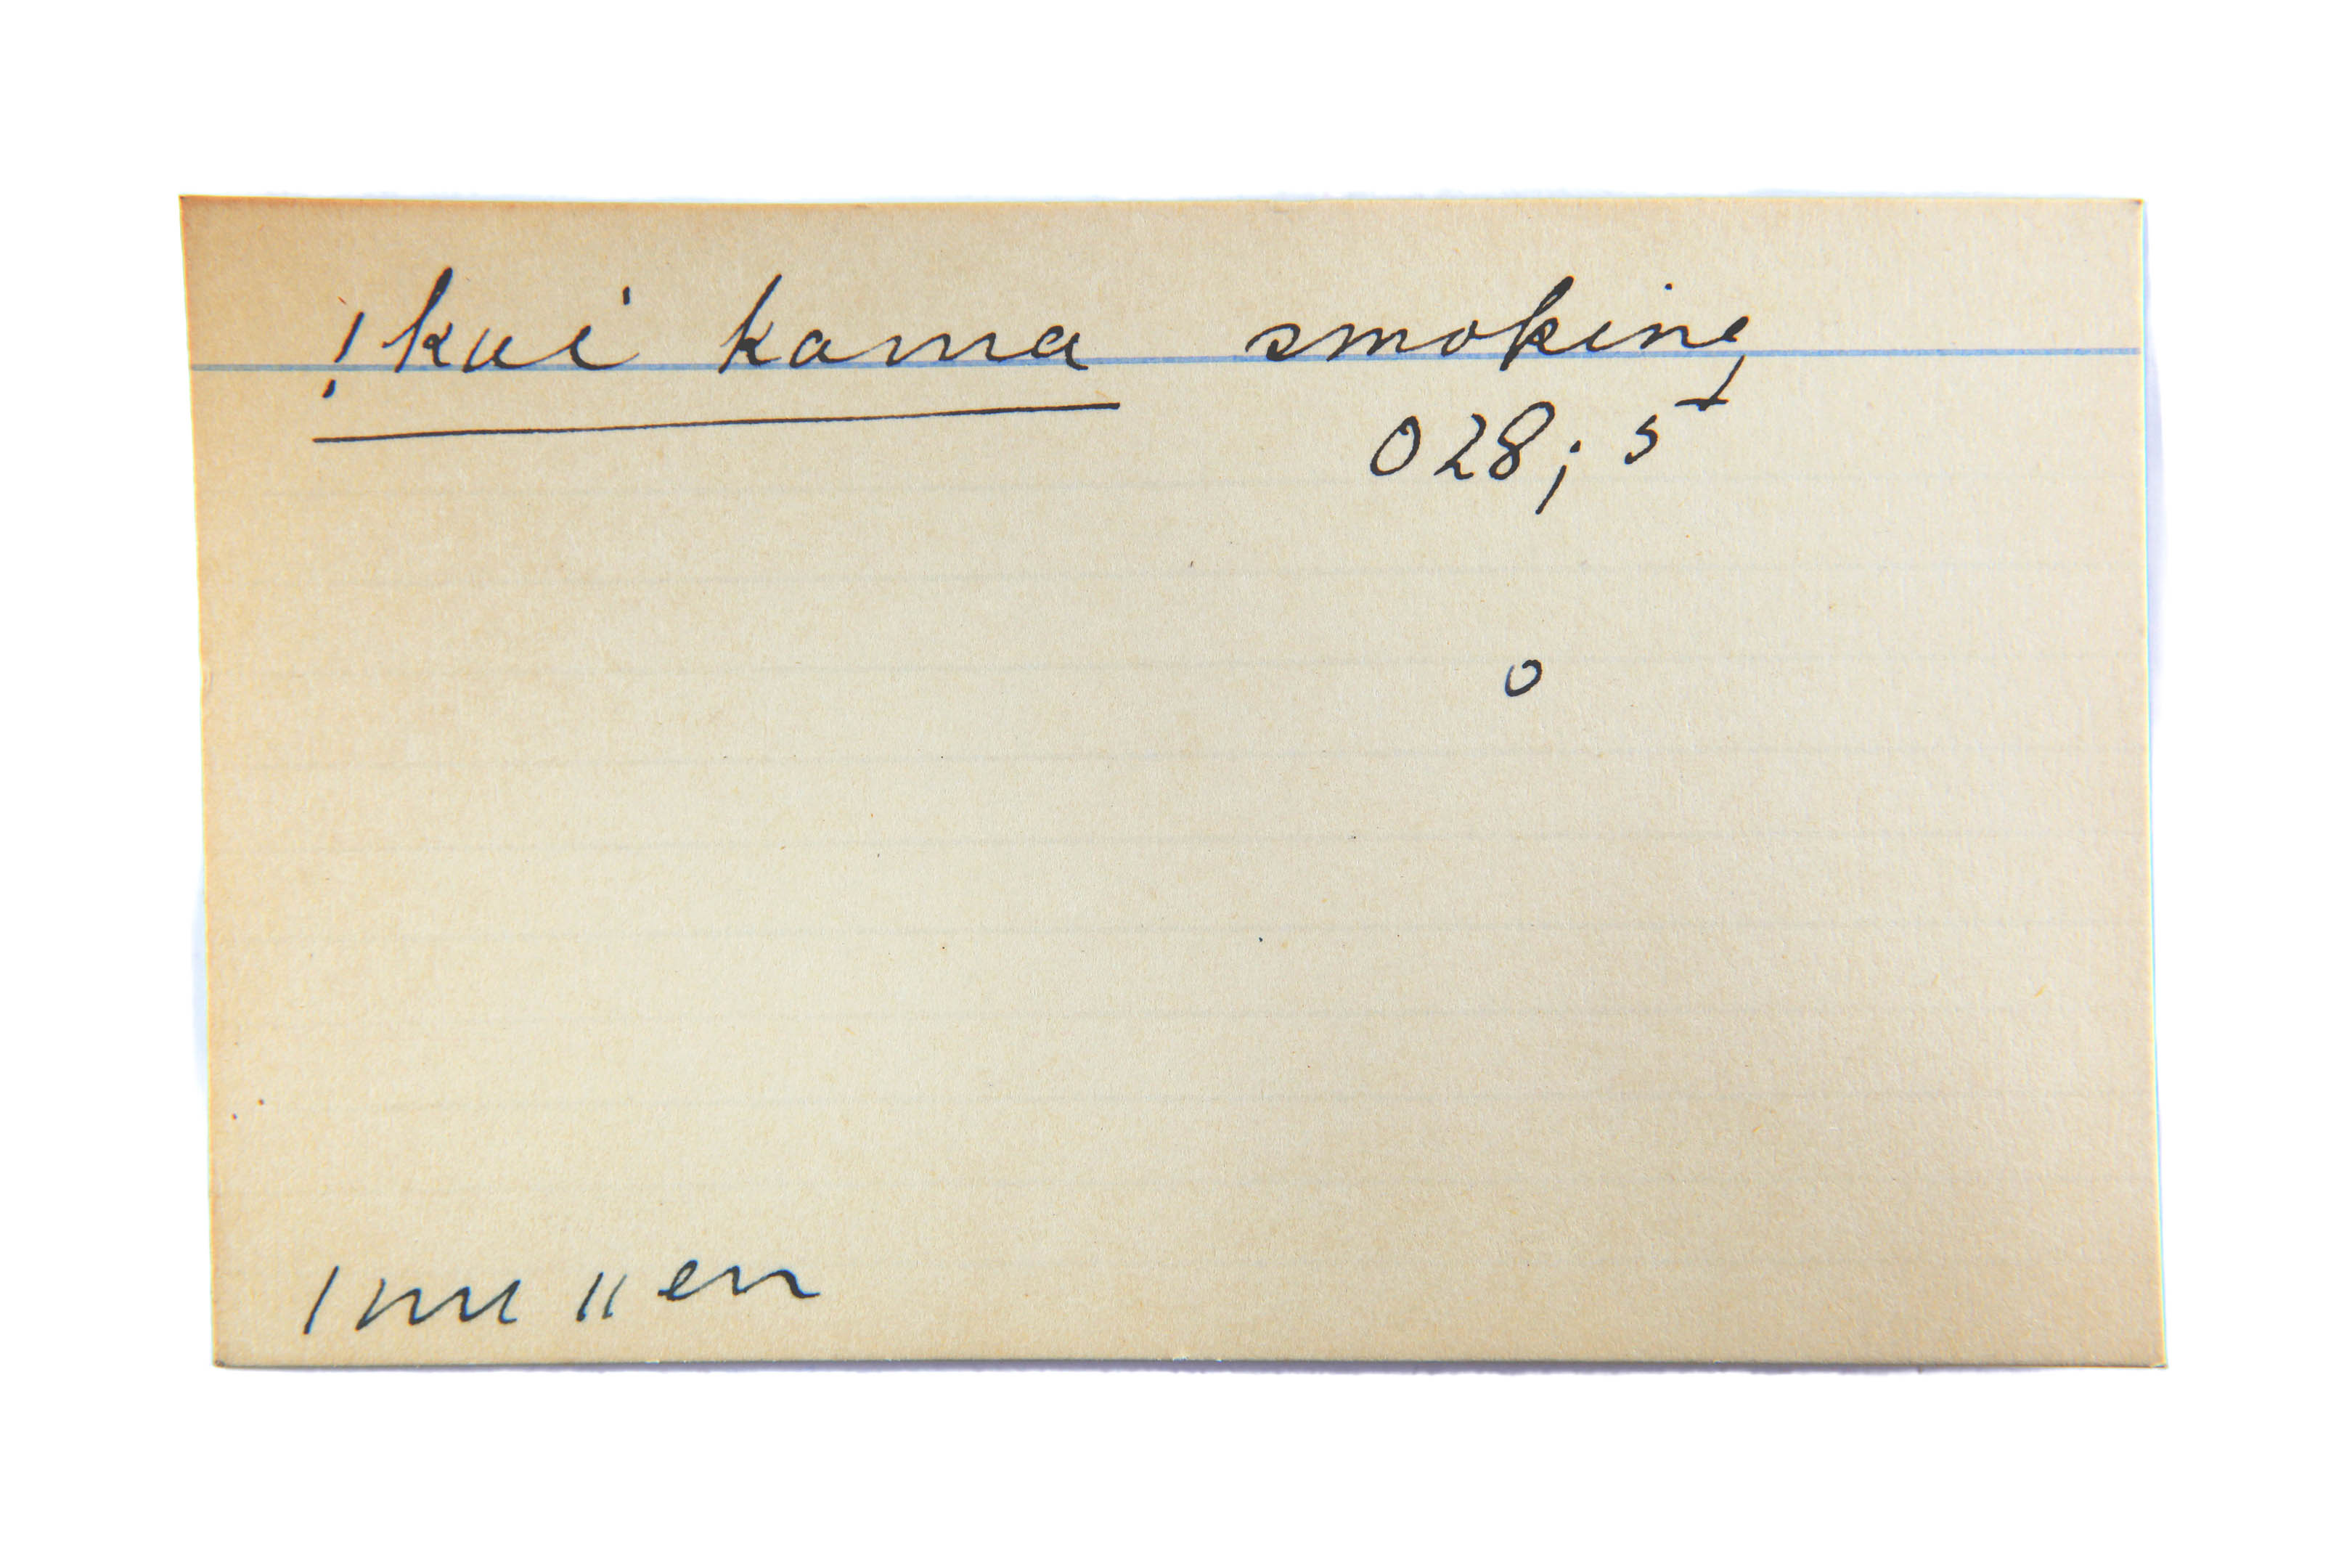 !kui kama smoking
028; 5
o
|nu ||en